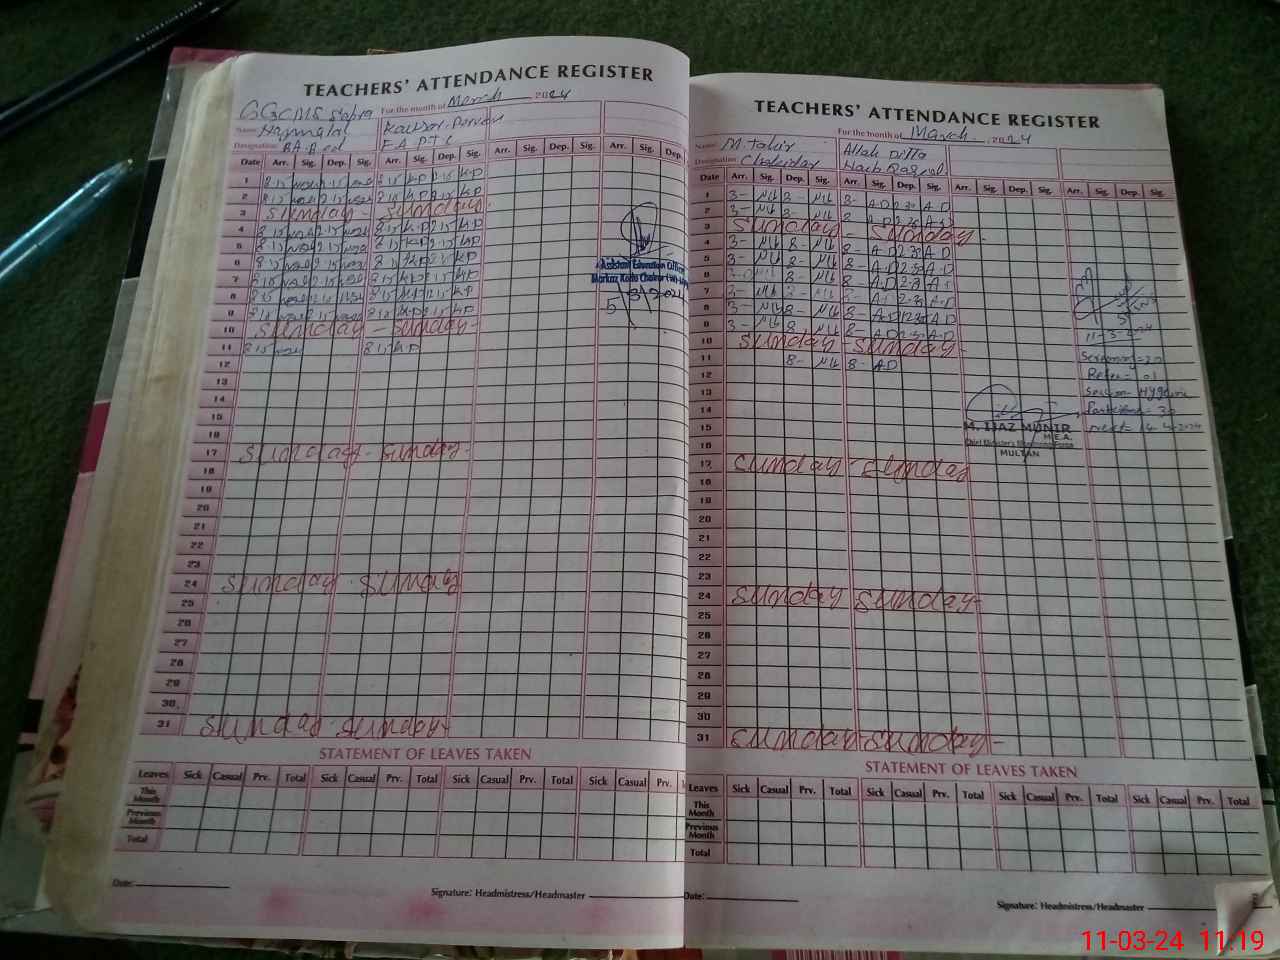 TEACHERS' ATTENDANCE REGISTER
For the month of March 2024
Name
Designation
Date Arr. Sig. Dep. Sig. Arr. Sig. Dep. Sig. Arr. Sig. Dep. Sig. Arr. Sig. Dep.
1 8 15 2 15 8 15 K.P 2 15 K.P
2 8 15 2 15 8 15 K.P 2 15 K.P
3 Sunday - Sunday
4 8 15 2 15 8 15 K.P 2 15 K.P
5 8 15 2 15 8 15 K.P 2 15 K.P
6 8 15 2 15 8 15 K.P 2 15 K.P
7 8 15 2 15 8 15 K.P 2 15 K.P
8 8 15 2 15 8 15 K.P 2 15 K.P
9 8 15 2 15 8 15 K.P 2 15 K.P
10 Sunday - Sunday -
11 8 15 8 15 K.P
12
13
14
15
16
17 Sunday - Sunday -
18
19
20
21
22
23
24 Sunday - Sunday
25
26
27
28
29
30
31 Sunday - Sunday
Assistant Education Officer
5/3/2024
STATEMENT OF LEAVES TAKEN
Leaves Sick Casual Prv. Total Sick Casual Prv. Total Sick Casual Prv. Total Sick Casual Prv.
This Month
Previous Month
Total
Date:
Signature: Headmistress/Headmaster
TEACHERS' ATTENDANCE REGISTER
For the month of March 2024
Name M. Tahir Allah Ditta
Designation
Date Arr. Sig. Dep. Sig. Arr. Sig. Dep. Sig. Arr. Sig. Dep. Sig. Arr. Sig. Dep. Sig.
1 3- 8- 8- A.D 2 30 A.D
2 3- 8- 8- A.D 2 30 A.D
3 Sunday - Sunday -
4 3- 8- 8- A.D 2 30 A.D
5 3- 8- 8- A.D 2 30 A.D
6 8- 8- A.D 2 30 A.D
7 8- A.D 2 30 A.D
8 3- 8- 8- A.D 2 30 A.D
9 3- 8- 8- A.D 2 30 A.D
10 Sunday - Sunday -
11 8- 8- A.D
12
13
14
15
16
17 Sunday - Sunday
18
19
20
21
22
23
24 Sunday Sunday -
25
26
27
28
29
30
31 Sunday - Sunday -
11-3-2024
Screening = 20
Refer = 01
Session = Hygiene
Participant = 30
Next = 14-4-2024
M. IJAZ MUNIR
M.E.A.
MULTAN
STATEMENT OF LEAVES TAKEN
Leaves Sick Casual Prv. Total Sick Casual Prv. Total Sick Casual Prv. Total Sick Casual Prv. Total
This Month
Previous Month
Total
Date:
Signature: Headmistress/Headmaster
11-03-24 11:19